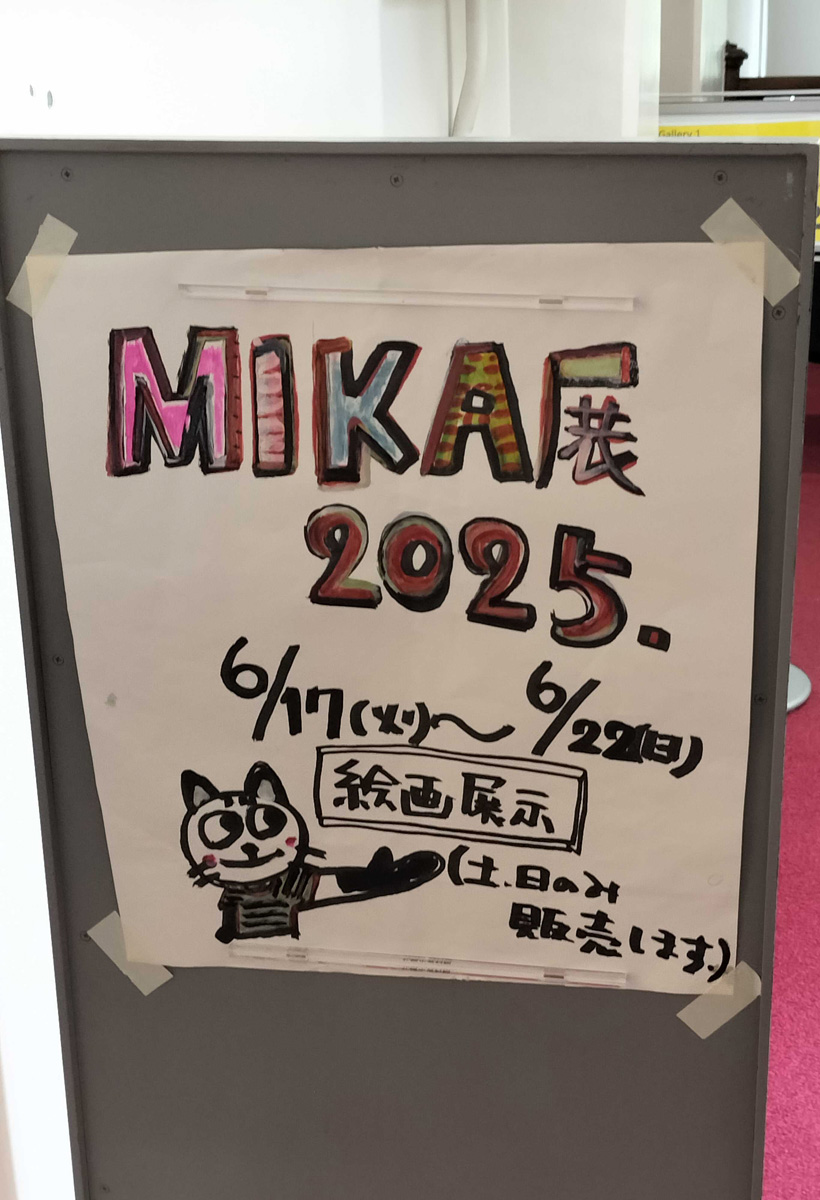 Gallery 1
MIKA展
2025.
6/17(火)〜6/22(日)
絵画展示
(土.日のみ
販売します。)